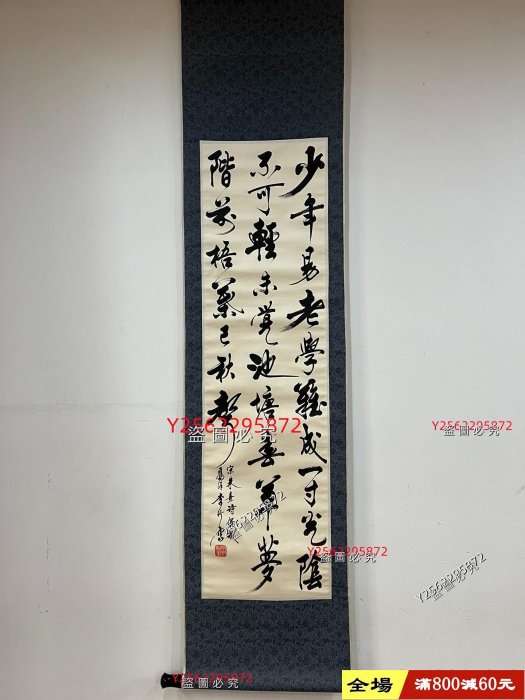 少年易老學難成一寸光陰
不可輕未覺池塘春草夢
階前梧葉已秋聲
宋朱熹詩
Y2563295872
盜圖必究
Y2563295872
盜圖必究
Y2563295872
盜圖必究
Y2563295872
盜圖必究
Y2563295872
盜圖必究
Y2563295872
盜圖必究
全場
滿800減60元